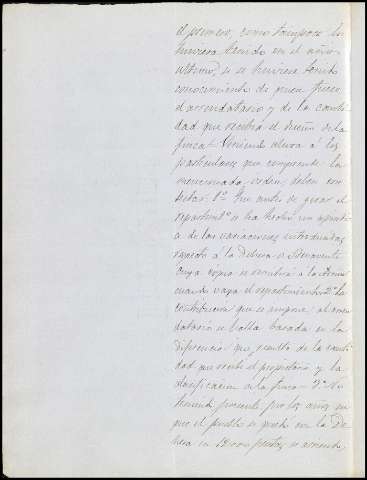 el primero, como tampoco lo
hubiera tenido en el año
ultimo, si se hubiera tenido
conocimiento de quien fuese
el arrendatario y de la canti
dad que recibia el dueño de la
finca. Viniendo ahora á los
particulares que comprende la
mencionada orden, deben con
testar: 1º Que antes de girar el
repartimtº se ha hecho un apendi
ce de las variaciones introducidas
respecto á la Dehesa de Benavente
cuya copia se remitirá á la
cuando vaya el repartimiento 2º La
contribucion que se impone al arren
datario se halla basada en la
diferencia que resulta de la canti
dad que recibe el propietario y la
clasificacion de la finca. 3º
teniendo presente por los años en
que el pueblo se quedó con la De
hesa en pesetas se